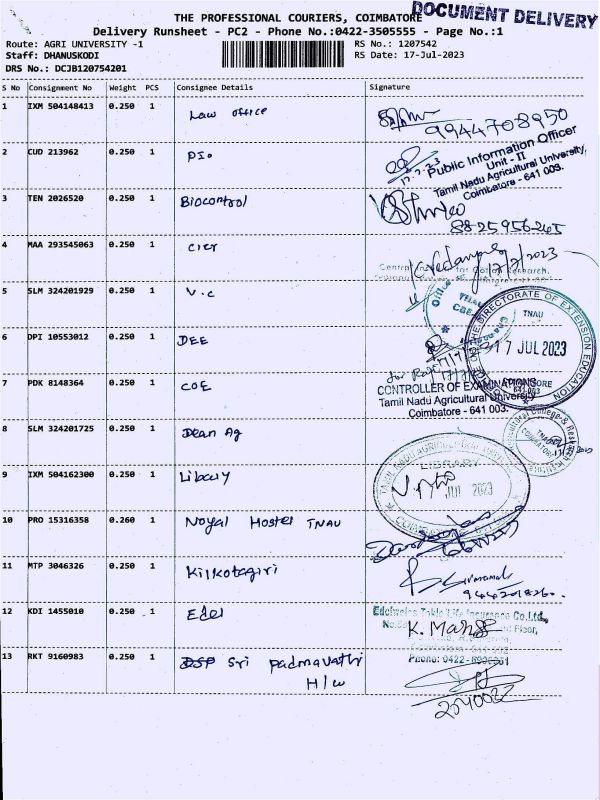 THE PROFESSIONAL COURIERS, COIMBATORE
DOCUMENT DELIVERY
Delivery Runsheet - PC2 - Phone No.:0422-3505555 - Page No.:1
Route: AGRI UNIVERSITY -1
RS No.: 1207542
Staff: DHANUSKODI
RS Date: 17-Jul-2023
DRS No.: DCJB120754201
S No Consignment No Weight PCS Consignee Details Signature
1 IXM 504148413 0.250 1 Law office
9944708950
2 CUD 213962 0.250 1 PIO
17.7.23
Public Information Officer
Unit - II
Tamil Nadu Agricultural University,
Coimbatore - 641 003.
3 TEN 2026520 0.250 1 Biocontrol
8825956265
4 MAA 293545063 0.250 1 CICR
17/7/2023
5 SLM 324201929 0.250 1 V.C
6 DPI 10553012 0.250 1 DEE
THE DIRECTORATE OF EXTENSION EDUCATION
TNAU
17 JUL 2023
641-003
7 PDK 8148364 0.250 1 COE
CONTROLLER OF EXAMINATIONS
Tamil Nadu Agricultural University
Coimbatore - 641 003.
8 SLM 324201725 0.250 1 Dean Ag
9 IXM 504162300 0.250 1 Library
LIBRARY
JUL 2023
10 PRO 15316358 0.260 1 Noyal Hostel TNAU
11 MTP 3046326 0.250 1 Kilkotagiri
9442018260
12 KDI 1455010 0.250 1 Edel
Edelweiss Tokio Life Insurance Co.Ltd.,
Floor,
Phone: 0422-
13 RKT 9160983 0.250 1 DSP Sri Padmavathi
H/W
2540022